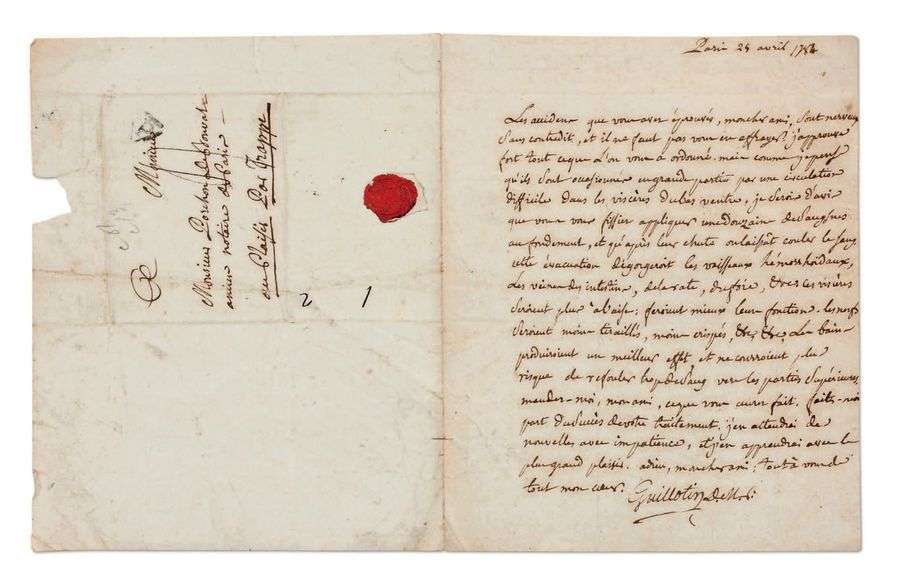 à Monsieur
Monsieur Porcheron de Bonval
ancien notaire de Paris
au Plaisir Par Trappe
2 1
Paris 25 avril
Les accidens que vous avez éprouvés, mon cher ami, Sont nerveux
Sans contredit, et il ne faut pas vous en effrayer. j'approuve
fort tout ce que l'on vous a ordonné. mais comme je pense
qu'ils Sont occasionnés en grande partie par une circulation
difficile dans les viscères du bas ventre, je Serois d'avis
que vous vous fissiez appliquer une douzaine de Sangsues
au fondement, et qu'après leur chute on laissât couler le Sang
cette évacuation dégorgeroit les vaisseaux hémorrhoïdaux,
des veines des intestins, de la rate, du foie, &c &c ces viscères
Seroient plus à l'aise; feroient mieux leur fonction. les nerfs
Seroient moins tiraillés, moins crispés, &c, &c. Les bains
produiroient un meilleur effet et ne courroient plus
risque de refouler trop de Sang vers les parties Supérieures
mandez-moi, mon ami, ce que vous aurez fait. faites-moi
part du Succès de votre traitement. j'en attendrai des
nouvelles avec impatience, et j'en apprendrai avec le
plus grand plaisir. adieu, mon cher ami; tout à vous de
tout mon cœur. Guillotin